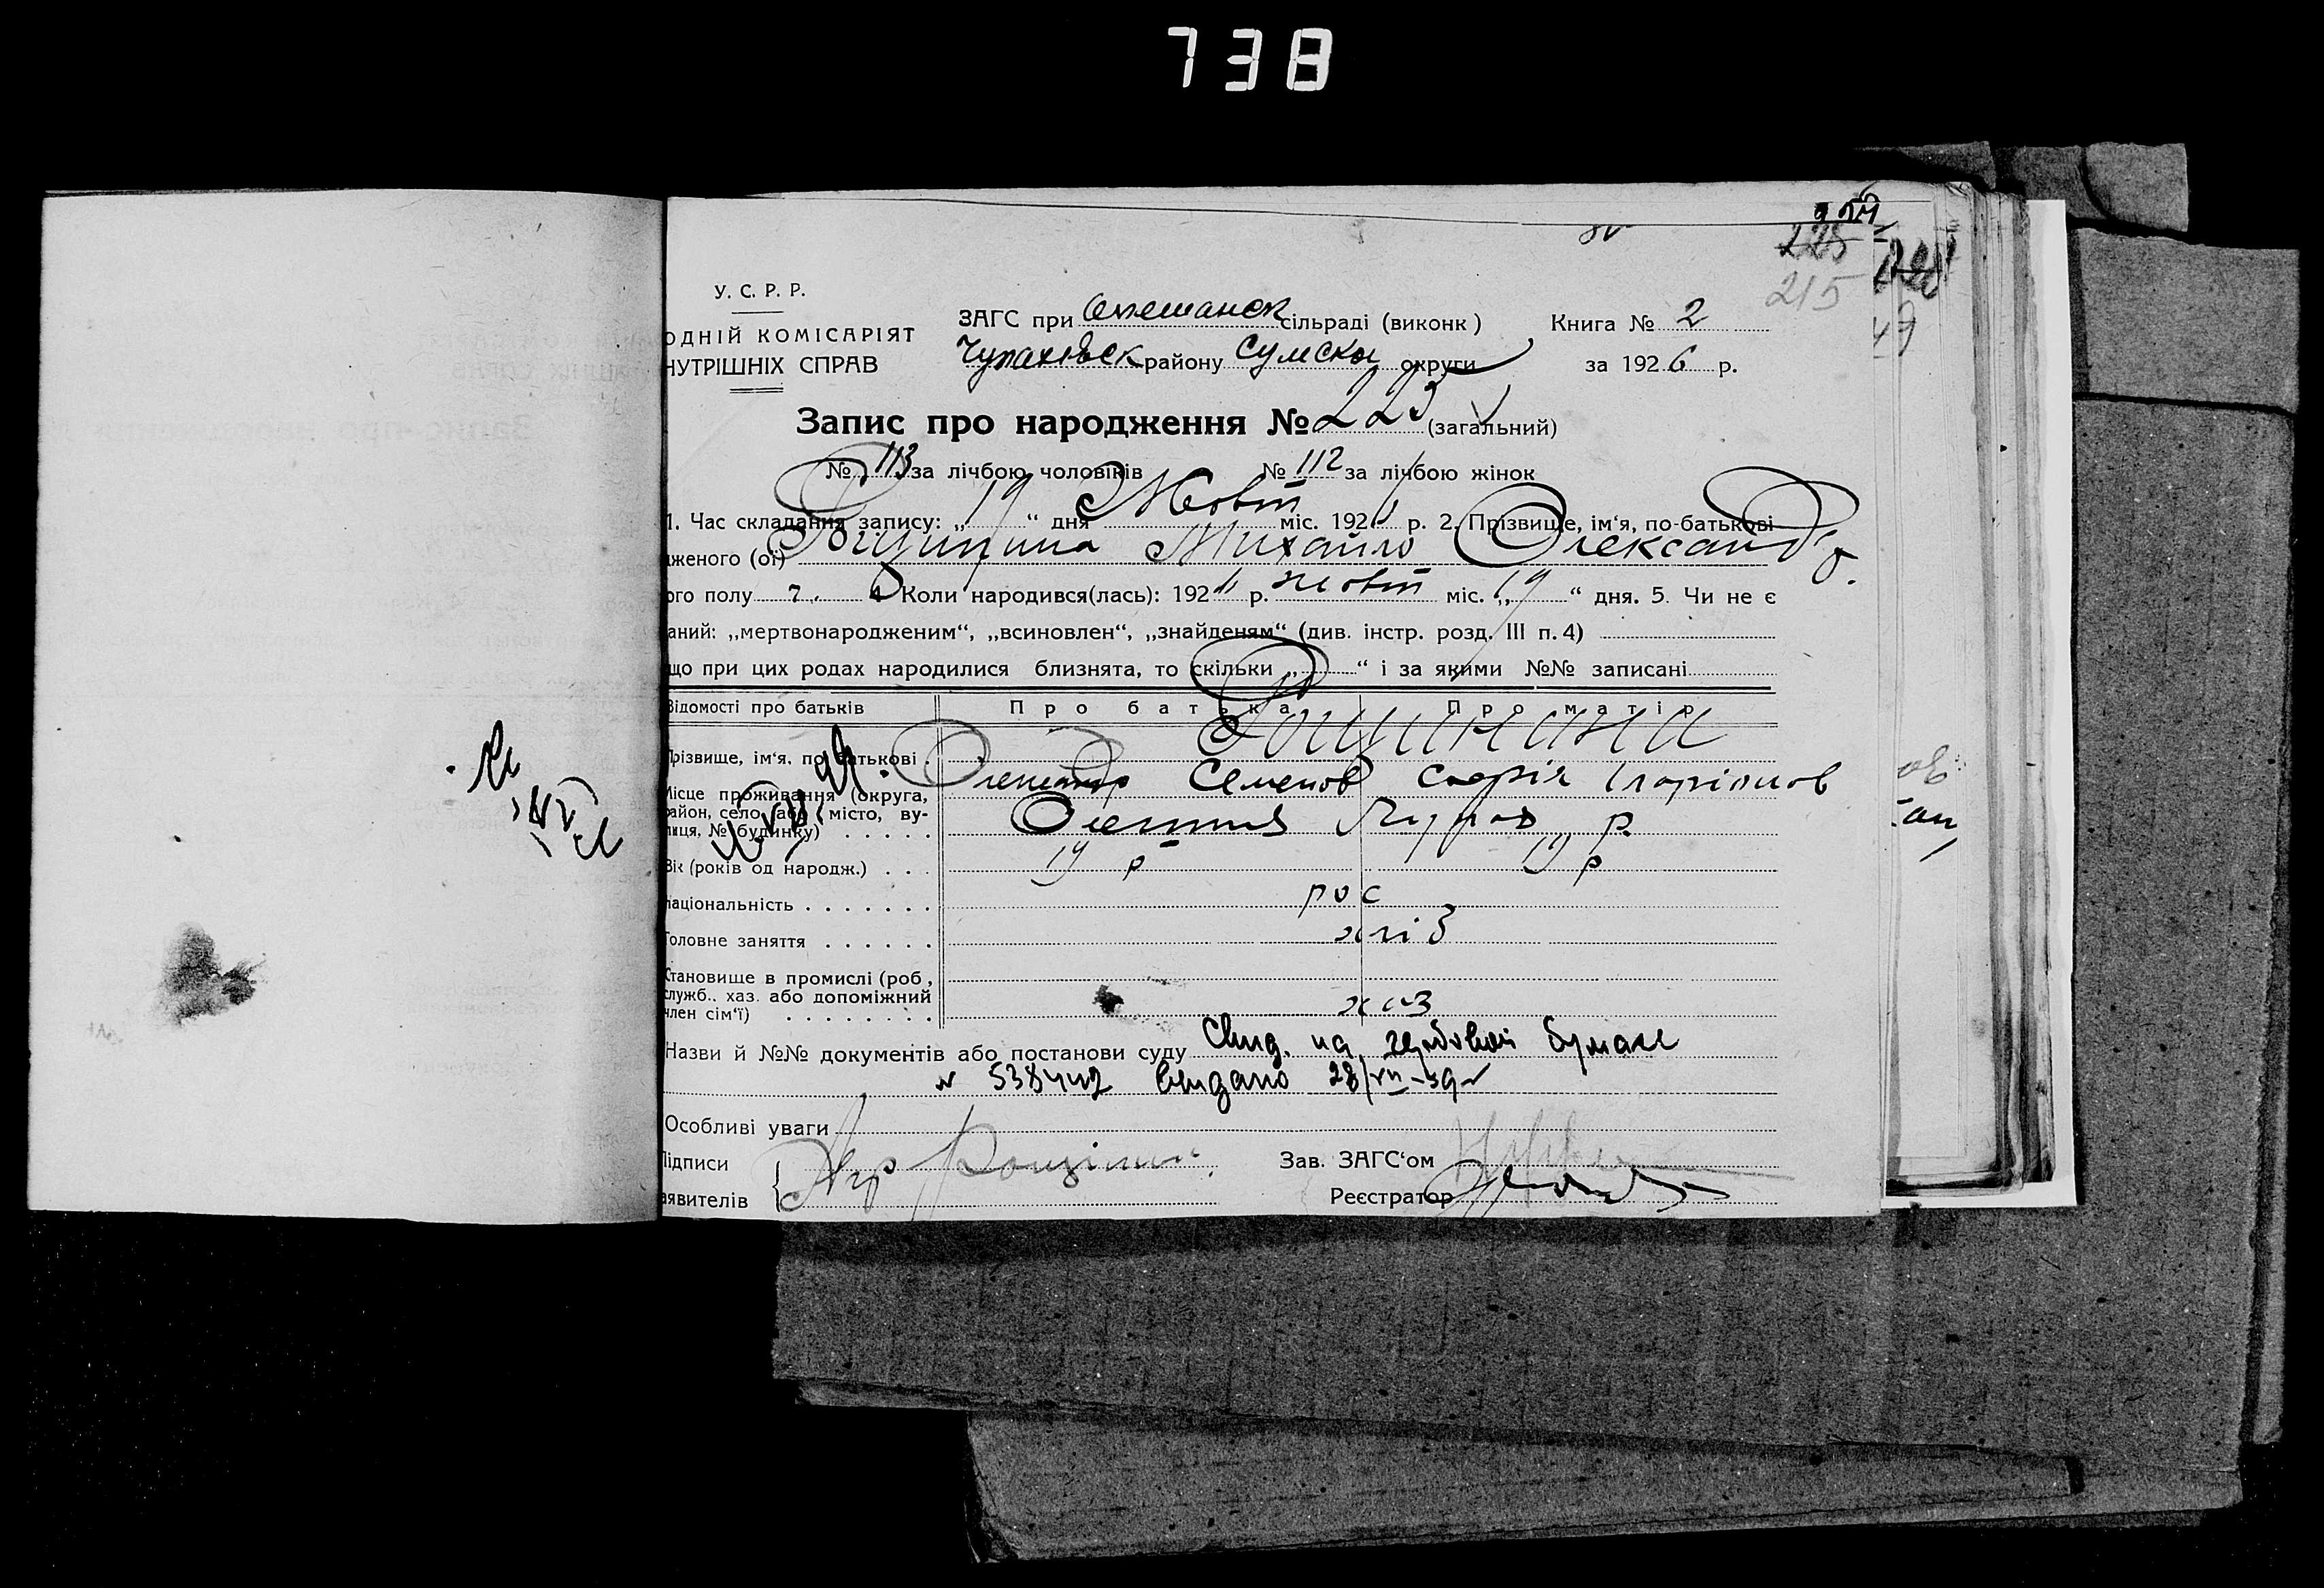 738
225
215
У. С. Р. Р.
ОДНІЙ КОМІСАРІЯТ
НУТРІШНІХ СПРАВ
ЗАГС при Олешанск сільраді (виконк)
Чупахівск району Сумської округи
Книга № 2
за 1926 р.
Запис про народження № 225 (загальний)
№ 113 за лічбою чоловіків № 112 за лічбою жінок
1. Час складання запису: „19“ дня Жовт міс. 1926 р. 2. Прізвище, ім‘я, по-батькові
женого (ої) Рощупкина Михайло Олександр
ого полу 7. 4 Коли народився(лась): 192 р. жовт міс. „19“ дня. 5. Чи не є
аний: „мертвонародженим“, „всиновлен“, „знайденям“ (див. інстр. розд. III п. 4)
що при цих родах народилися близнята, то скільки „ “ і за якими №№ записані
Відомості про батьків Про батька Про матір
Прізвище, ім‘я, по батькові . Олександр Семенов Софія Іларіонов
Місце проживання (округа,
район, село або місто, ву-
лиця, № будинку) . . . . .
р.
Вік (років од народж.) . . . 19 р 19 р
національність . . . . . . . рос
Головне заняття . . . . . . хліб
Становище в промислі (роб,
служб., хаз. або допоміжний
член сім‘ї) . . . . . . . . хаз
Назви й №№ документів або постанови суду Свид. на гербовой бумаге
№ 538442 выдано 28/VII-39 г
Особливі уваги
Підписи
аявителів
Зав. ЗАГС‘ом
Реєстратор